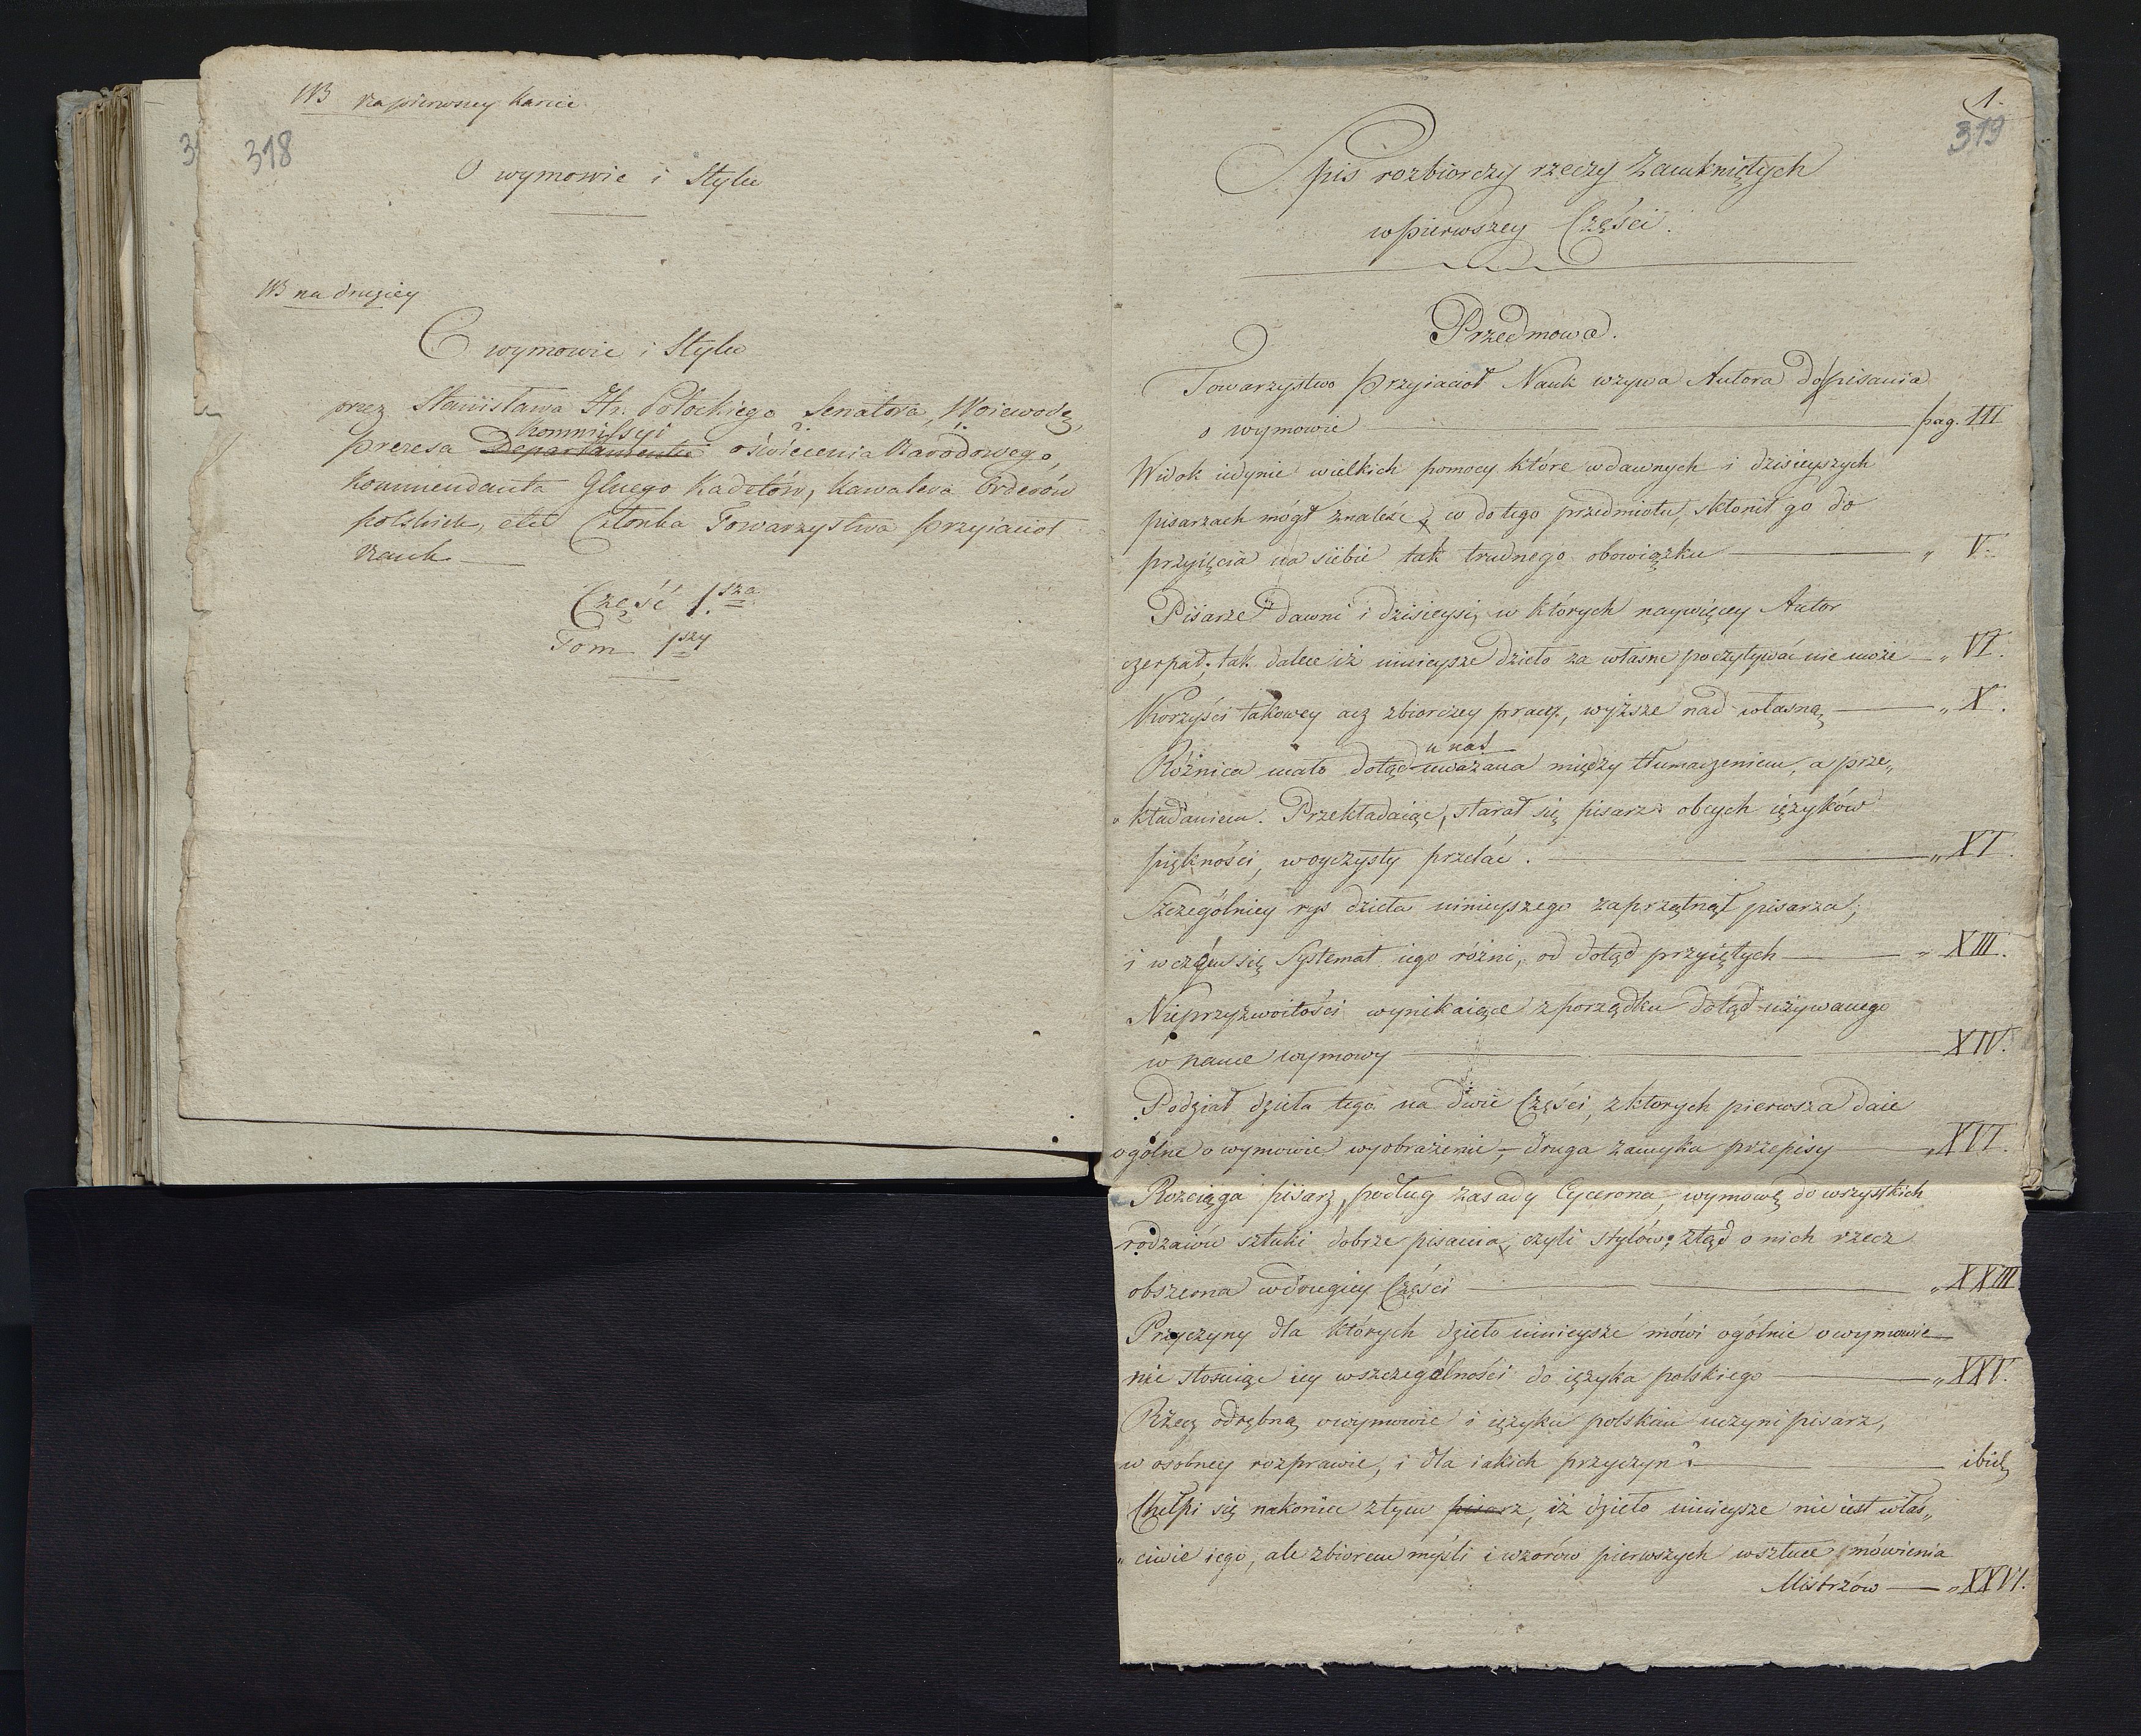 NB na pierwszey karcie
318
O wymowie i Stylu
NB na drugiey
O wymowie i Stylu
przez Stanisława Hr. Potockiego Senatora, Woiewodę,
Kommissyi
prezesa Departamentu oświecenia Narodowego,
Kommendanta Głnego Kadetów, Kawalera Orderów
polskich, etc Członka Towarzystwa przyiacioł
Nauk
Część 1.sza
Tom 1szy
1.
319
Spis rozbiorczy rzeczy Zamkniętych
w pierwszey Części.
Przedmowa.
Towarzystwo przyiacioł Nauk wzywa Autora do pisania
o wymowie pag. III
Widok iedynie wielkich pomocy które w dawnych i dzisieyszych
pisarzach mógł znaleść co do tego przedmiotu, skłonił go do
przyięcia na siebie tak trudnego obowiązku „ V.
Pisarze dawni i dzisieysi, w których naywięcey Autor
czerpał, tak dalece iż ninieysze dzieło za własne poczytywać nie może „ VI.
Korzyści takowey acz zbiorczey pracy, wyższe nad własną „ X.
u nas
Róźnica mało dotąd uważana między tłumaczeniem, a prze„
„kładaniem. Przekładaiąc, starał się pisarz obcych ięzyków
piękności, w oyczysty przelać. „ XI.
Szczególniey rys dzieła ninieyszego zaprzątnął pisarza;
i w czém się Systemat iego różni, od dotąd przyiętych „ XIII.
Nieprzyzwoitości wynikaiące z porządku dotąd używanego
w nauce wymowy XIV.
Podział dzieła tego na dwie Części, z ktorych pierwsza daie
ogólne o wymowie wyobrażenie, druga zamyka przepisy „ XVI.
Rozciąga pisarz, podług zasady Cycerona, wymowę do wszystkich
rodzaiów sztuki dobrze pisania, czyli stylów; ztąd o nich rzecz
obszerna w drugiey Części „ XXIII
Przyczyny dla których dzieło ninieysze mówi ogólnie o wymowie
nie stosuiąc iey w szczególności do ięzyka polskiego „ XXV.
Rzecz odrębną o wymowie i ięzyku polskim uczyni pisarz,
w osobney rozprawie, i dla iakich przyczyn? ibid
Chełpi się nakoniec z tym pisarz, iż dzieło ninieysze nie iest właś„
„ciwie iego, ale zbiorem myśli i wzorów pierwszych w sztuce mówienia
Mistrzów „ XXVI.